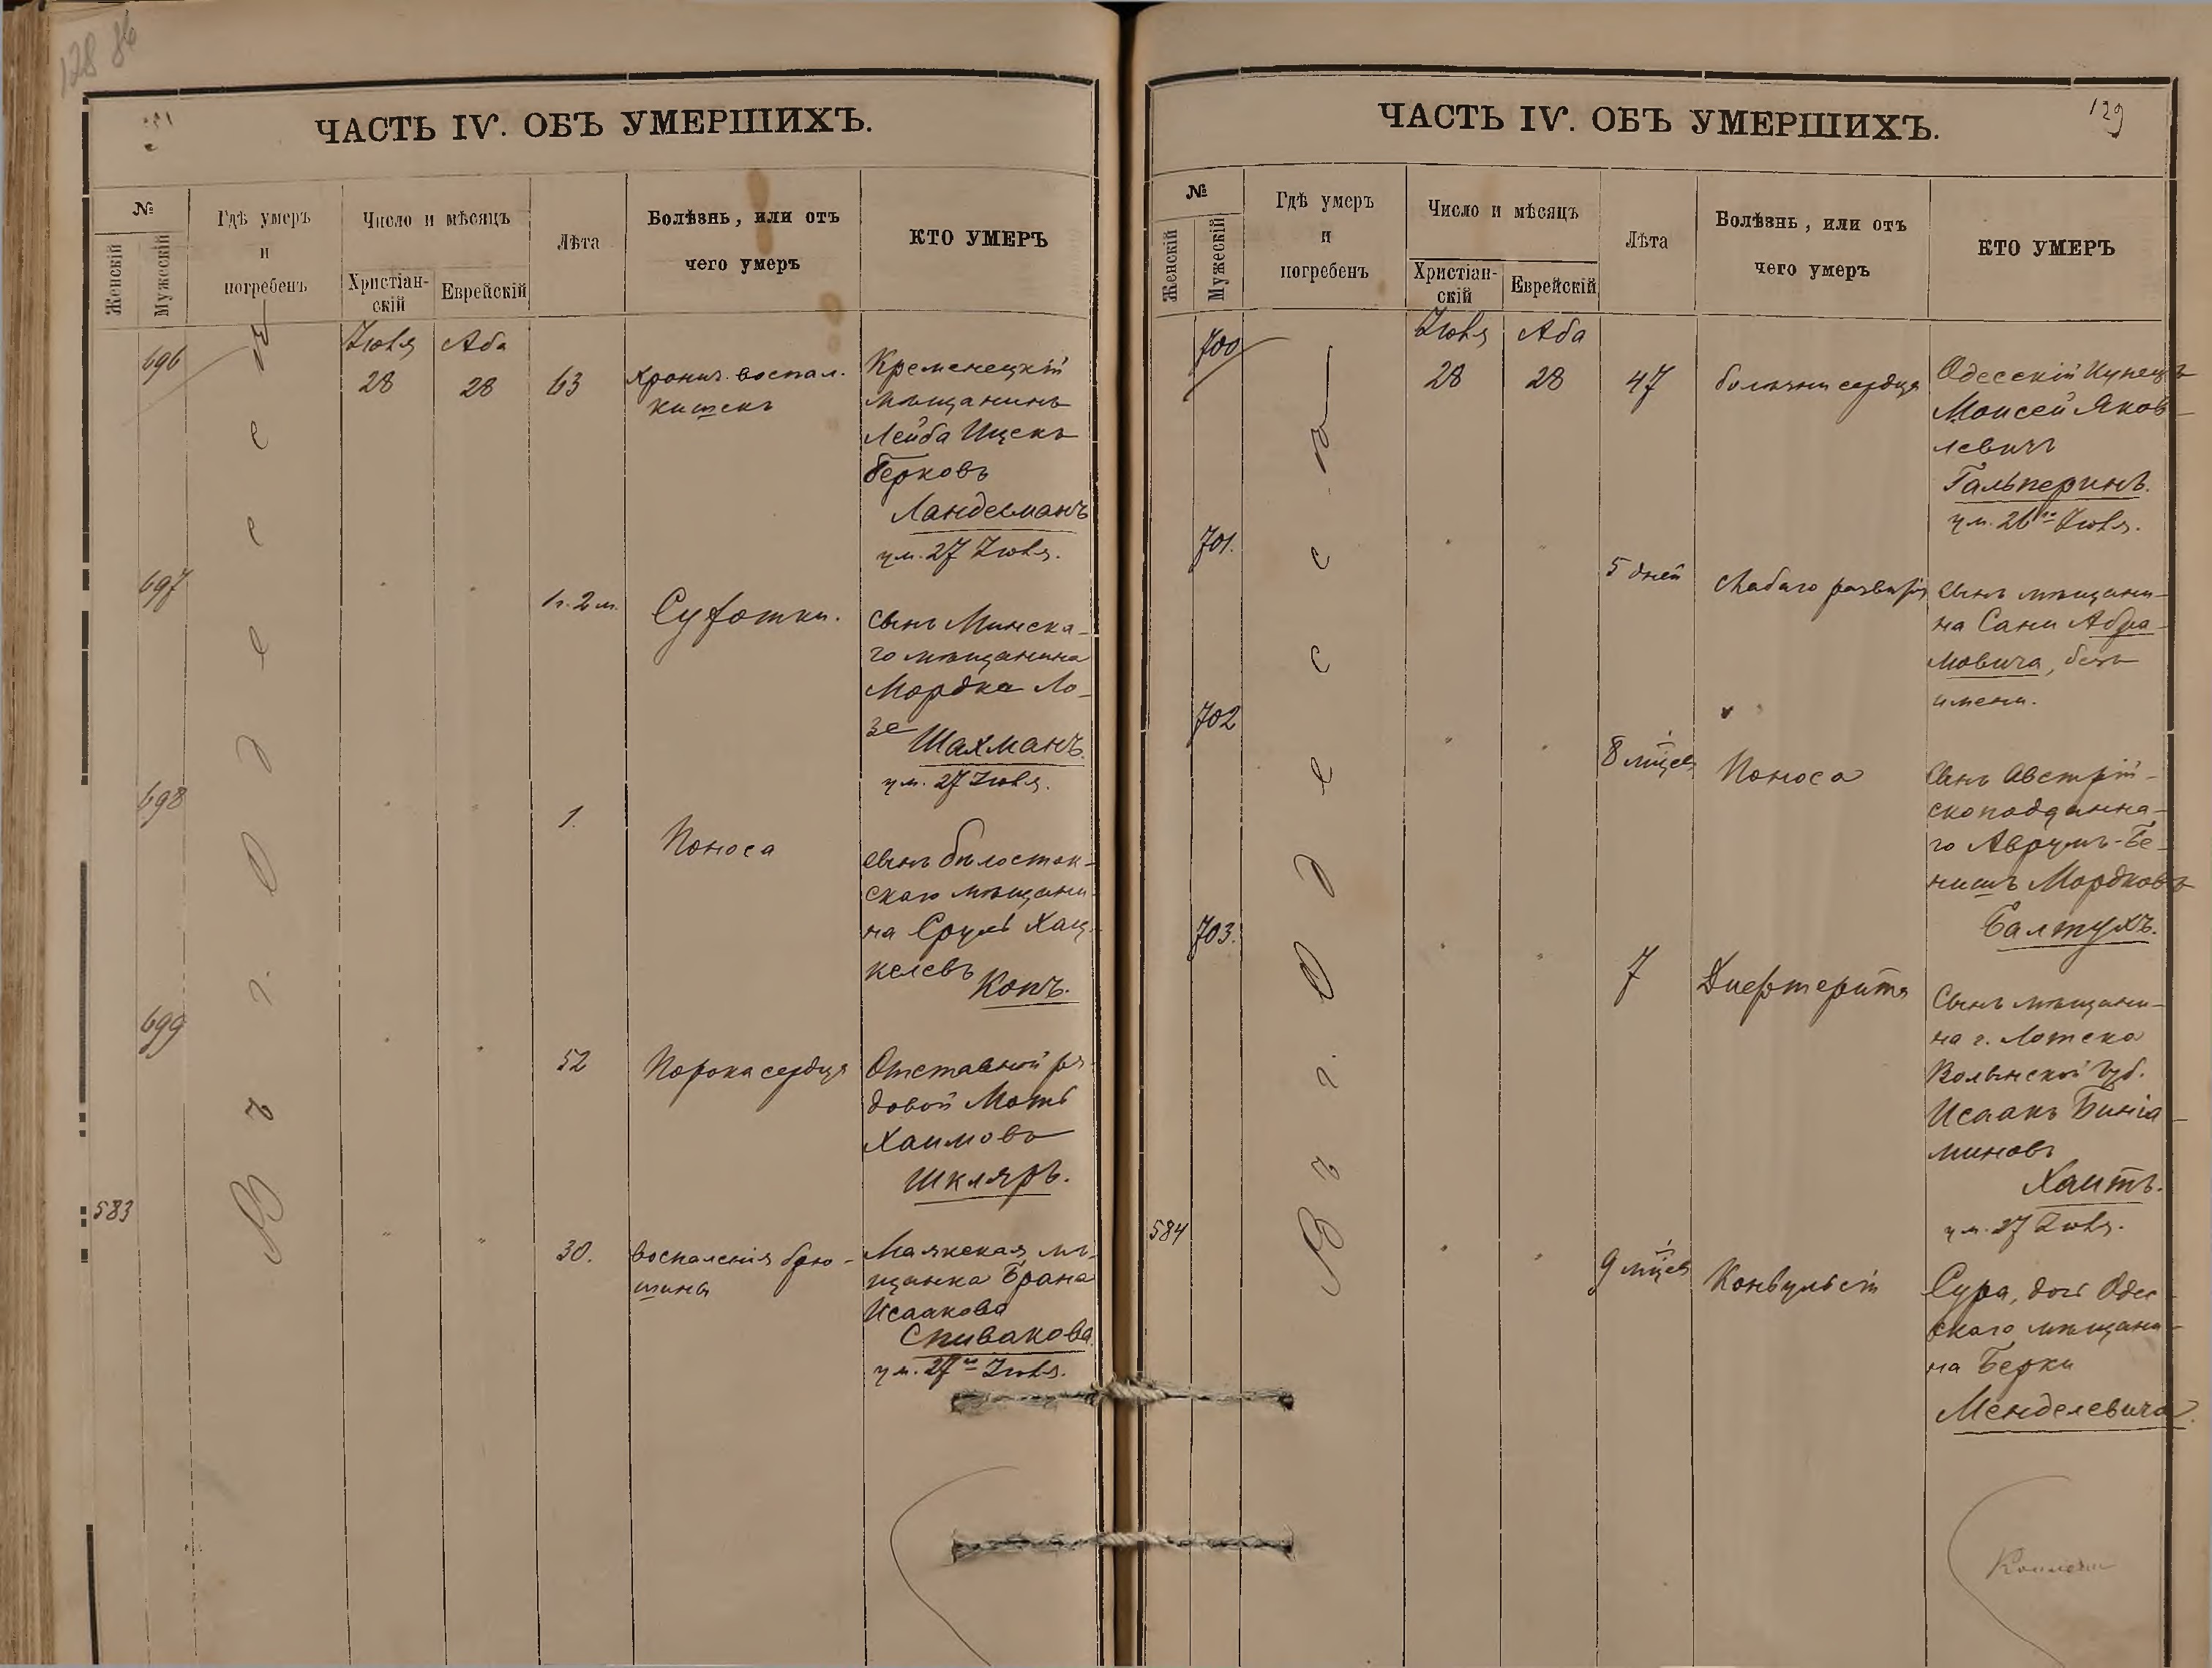 128 86
ЧАСТЬ IV. ОБЪ УМЕРШИХЪ.
№
Женскій
Мужескій
Гдѣ умеръ
и
погребенъ
Число и мѣсяцъ
Христіан-
скій
Еврейскій
Лѣта
Болѣзнь, или отъ
чего умеръ
КТО УМЕРЪ
Въ г. Одессѣ
696
Іюля
Аба
28
28
63
Хронич. воспал.
кишекъ
Кременецкій
мѣщанинъ
Лейба Ицекъ
Берковъ
Ландесманъ
ум. 27 Іюля.
697
" "
1 г. 2 м.
Сухотки.
сынъ Минска-
го мѣщанина
Мордка Ло-
зе
Шахманъ.
ум. 27 Іюля.
698
" "
1.
Поноса
сынъ бѣлосток-
скаго мѣщани-
на Сруль Хац-
келевъ
Копъ.
699
" "
52
Порока сердца
Отставной ря-
довой Моть
Хаимовъ
Шкляръ.
583
" "
30.
воспаленія брю-
шины
Маякская мѣ-
щанка Брана
Исаакова
Спивакова.
ум. 27го Іюля.
ЧАСТЬ IV. ОБЪ УМЕРШИХЪ.
129
№
Женскій
Мужескій
Гдѣ умеръ
и
погребенъ
Число и мѣсяцъ
Христіан-
скій
Еврейскій
Лѣта
Болѣзнь, или отъ
чего умеръ
КТО УМЕРЪ
Въ г. Одессѣ
700
Іюля
Аба
28
28
47
болѣзни сердца
Одесскій Купецъ
Моисей Яков-
левичъ
Гальперинъ.
ум. 26го Іюля.
701.
" "
5 дней
слабаго развитія
сынъ мѣщани-
на Сани Абра-
мовича, безъ
имени.
702
" "
8 мцев
Поноса
Сынъ Австрій-
скоподданна-
го Аврумъ-Бе-
нишъ Мордковъ
Балтухъ.
703.
" "
7
Дифтерита
Сынъ мѣщани-
на г. Лотска
Волынской Губ.
Исаакъ Биніа-
миновъ
Хаитъ.
ум. 27 Іюля.
584
" "
9 мцев
Конвульсій
Сура, дочь Одес-
скаго мѣщани-
на Берки
Менделевича.